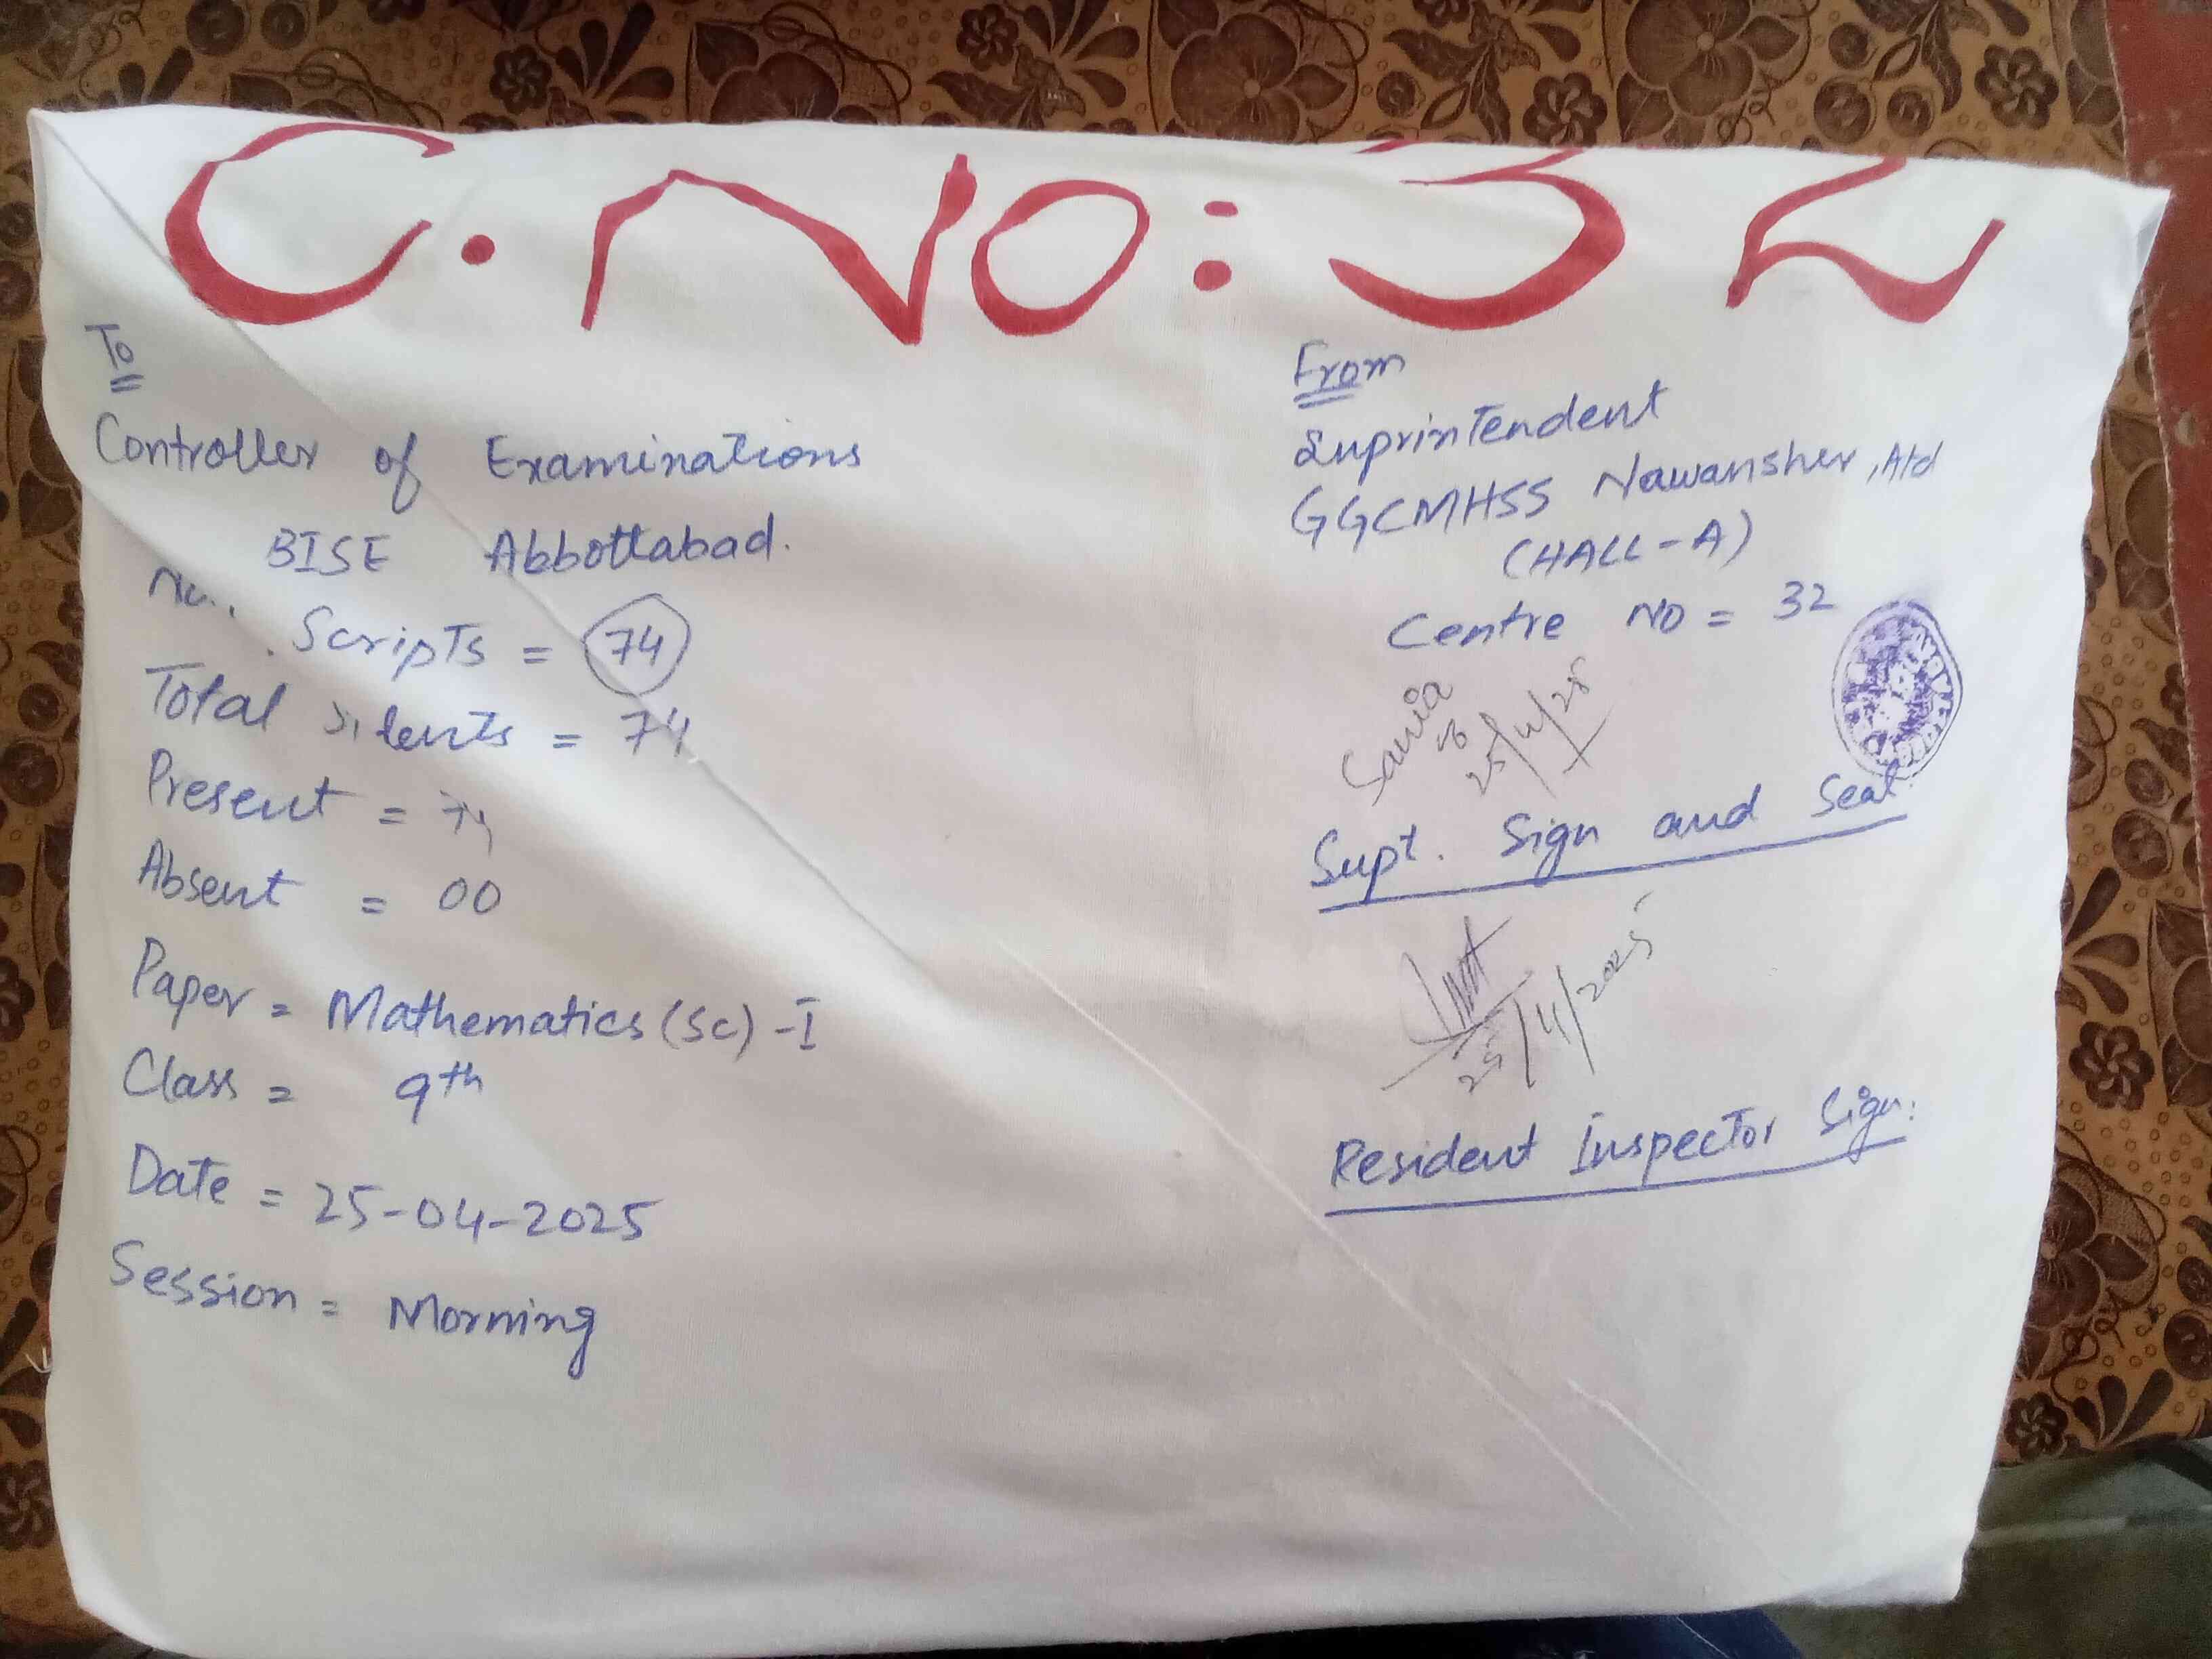 C. NO: 32
To
Controller of Examinations
BISE Abbottabad.
Scripts = 74
Total = 74
Present = 74
Absent = 00
Paper = Mathematics (Sc) -I
Class = 9th
Date = 25-04-2025
Session = Morning
From
Suprintendent
GGCMHSS Nawansher, Atd
(HALL-A)
Centre NO = 32
Sania
25/4/25
Supt. Sign and Seal.
25/4/2025
Resident Inspector Sign: